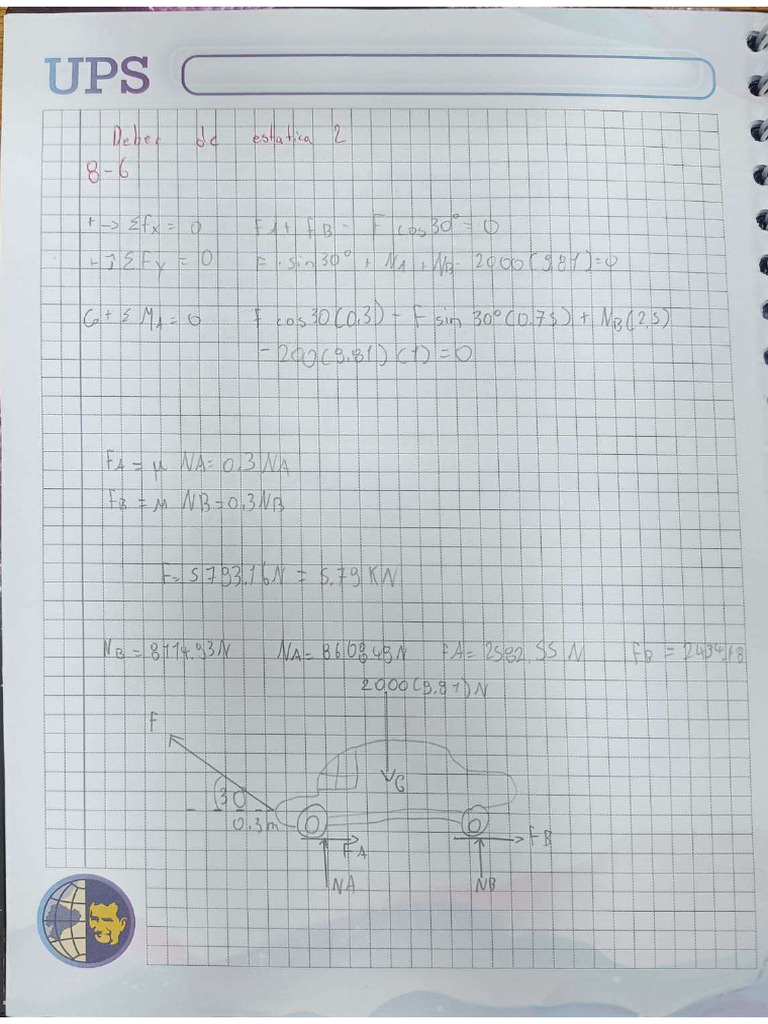 UPS
Deber de estatica 2
8-6
+→ Σfx = 0 FA + FB - F cos 30° = 0
+↑ΣFy = 0 F · sin 30° + NA + NB - 2000(9.81) = 0
G+ΣMA = 0 F cos30(0.3) - F sin 30°(0.75) + NB(2.5)
- 200(9.81)(1) = 0
FA = μ NA = 0.3 NA
FB = μ NB = 0.3 NB
F = 5793.16N = 5.79 KN
NB = 8114.93N NA = 8608.49N FA = 2582.55 N FB = 2434.48
2000(9.81)N
F
G
30
0.3m
FA
FB
NA
NB